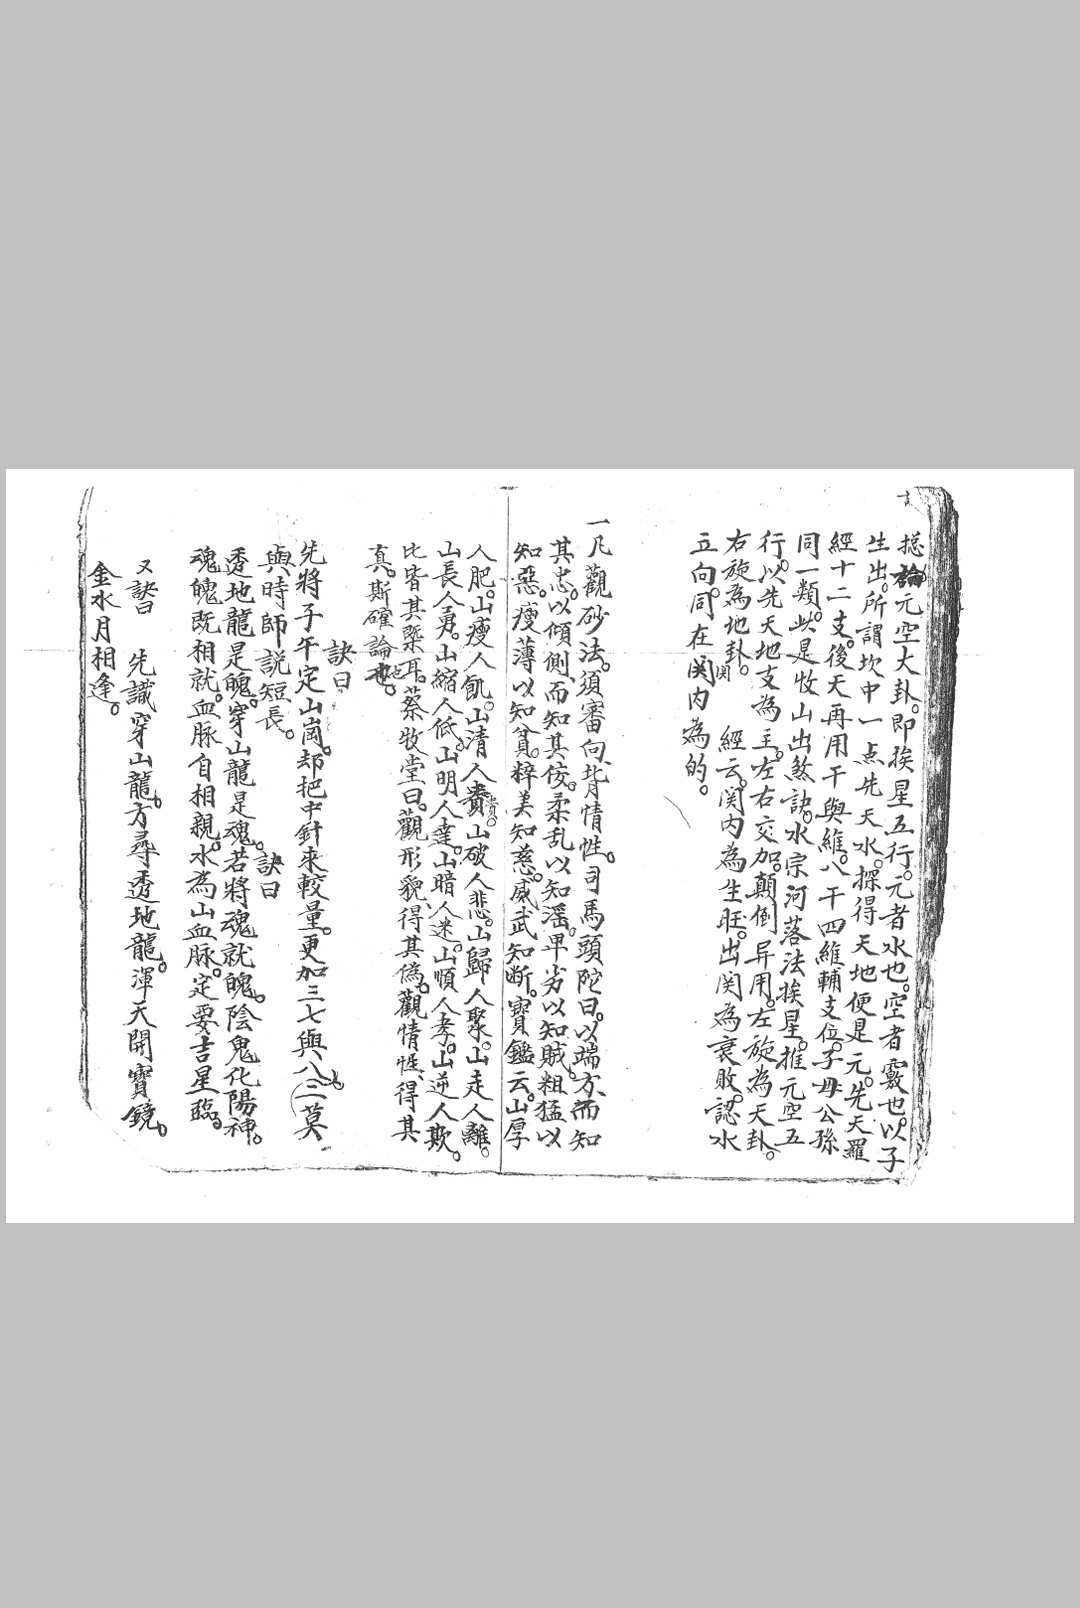 総論元空大卦。即挨星五行。元者水也。空者竅也。以子
生出。所謂坎中一点先天水。探得天地便是元。先天羅
經十二支。後天再用干與維。八干四維輔支位。子母公孫
同一類。此是收山出煞訣。水宗河落法挨星。推元空五
行。以先天地支為主。左右交加。顛倒异用。左旋為天卦。
右旋為地卦。関 經云。関内為生旺。出関為衰敗。認水
立向。同在関内為的。
一凡觀砂法。須審向背情性。司馬頭陀曰。以端方、而知
其忠。以傾側、而知其佞。柔乱以知淫。卑劣以知賊。粗猛以
知惡。瘦薄以知貧。粹美知慈。威武知断。寶鑑云。山厚
人肥。山瘦人飢。山清人貴。貴山破人悲。山歸人聚。山走人離。
山長人勇。山縮人低。山明人達。山暗人迷。山順人孝。山逆人欺。
比皆其槩耳。蔡牧堂曰。觀形貌、得其偽。觀情性、得其
真。斯確論也。
訣曰
先將子午定山崗。却把中針來較量。更加三七與八二。莫
與時師説短長。
訣曰
透地龍是魄。穿山龍是魂。若將魂就魄。陰鬼化陽神。
魂魄既相就。血脉自相親。水為山血脉。定要吉星臨。
又訣曰 先識穿山龍。方尋透地龍。渾天開寶鏡。
金水月相逢。